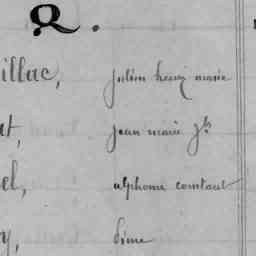 Q.
illac, julien henri marie
at, jean marie Jh
el, alphonse constant
y,